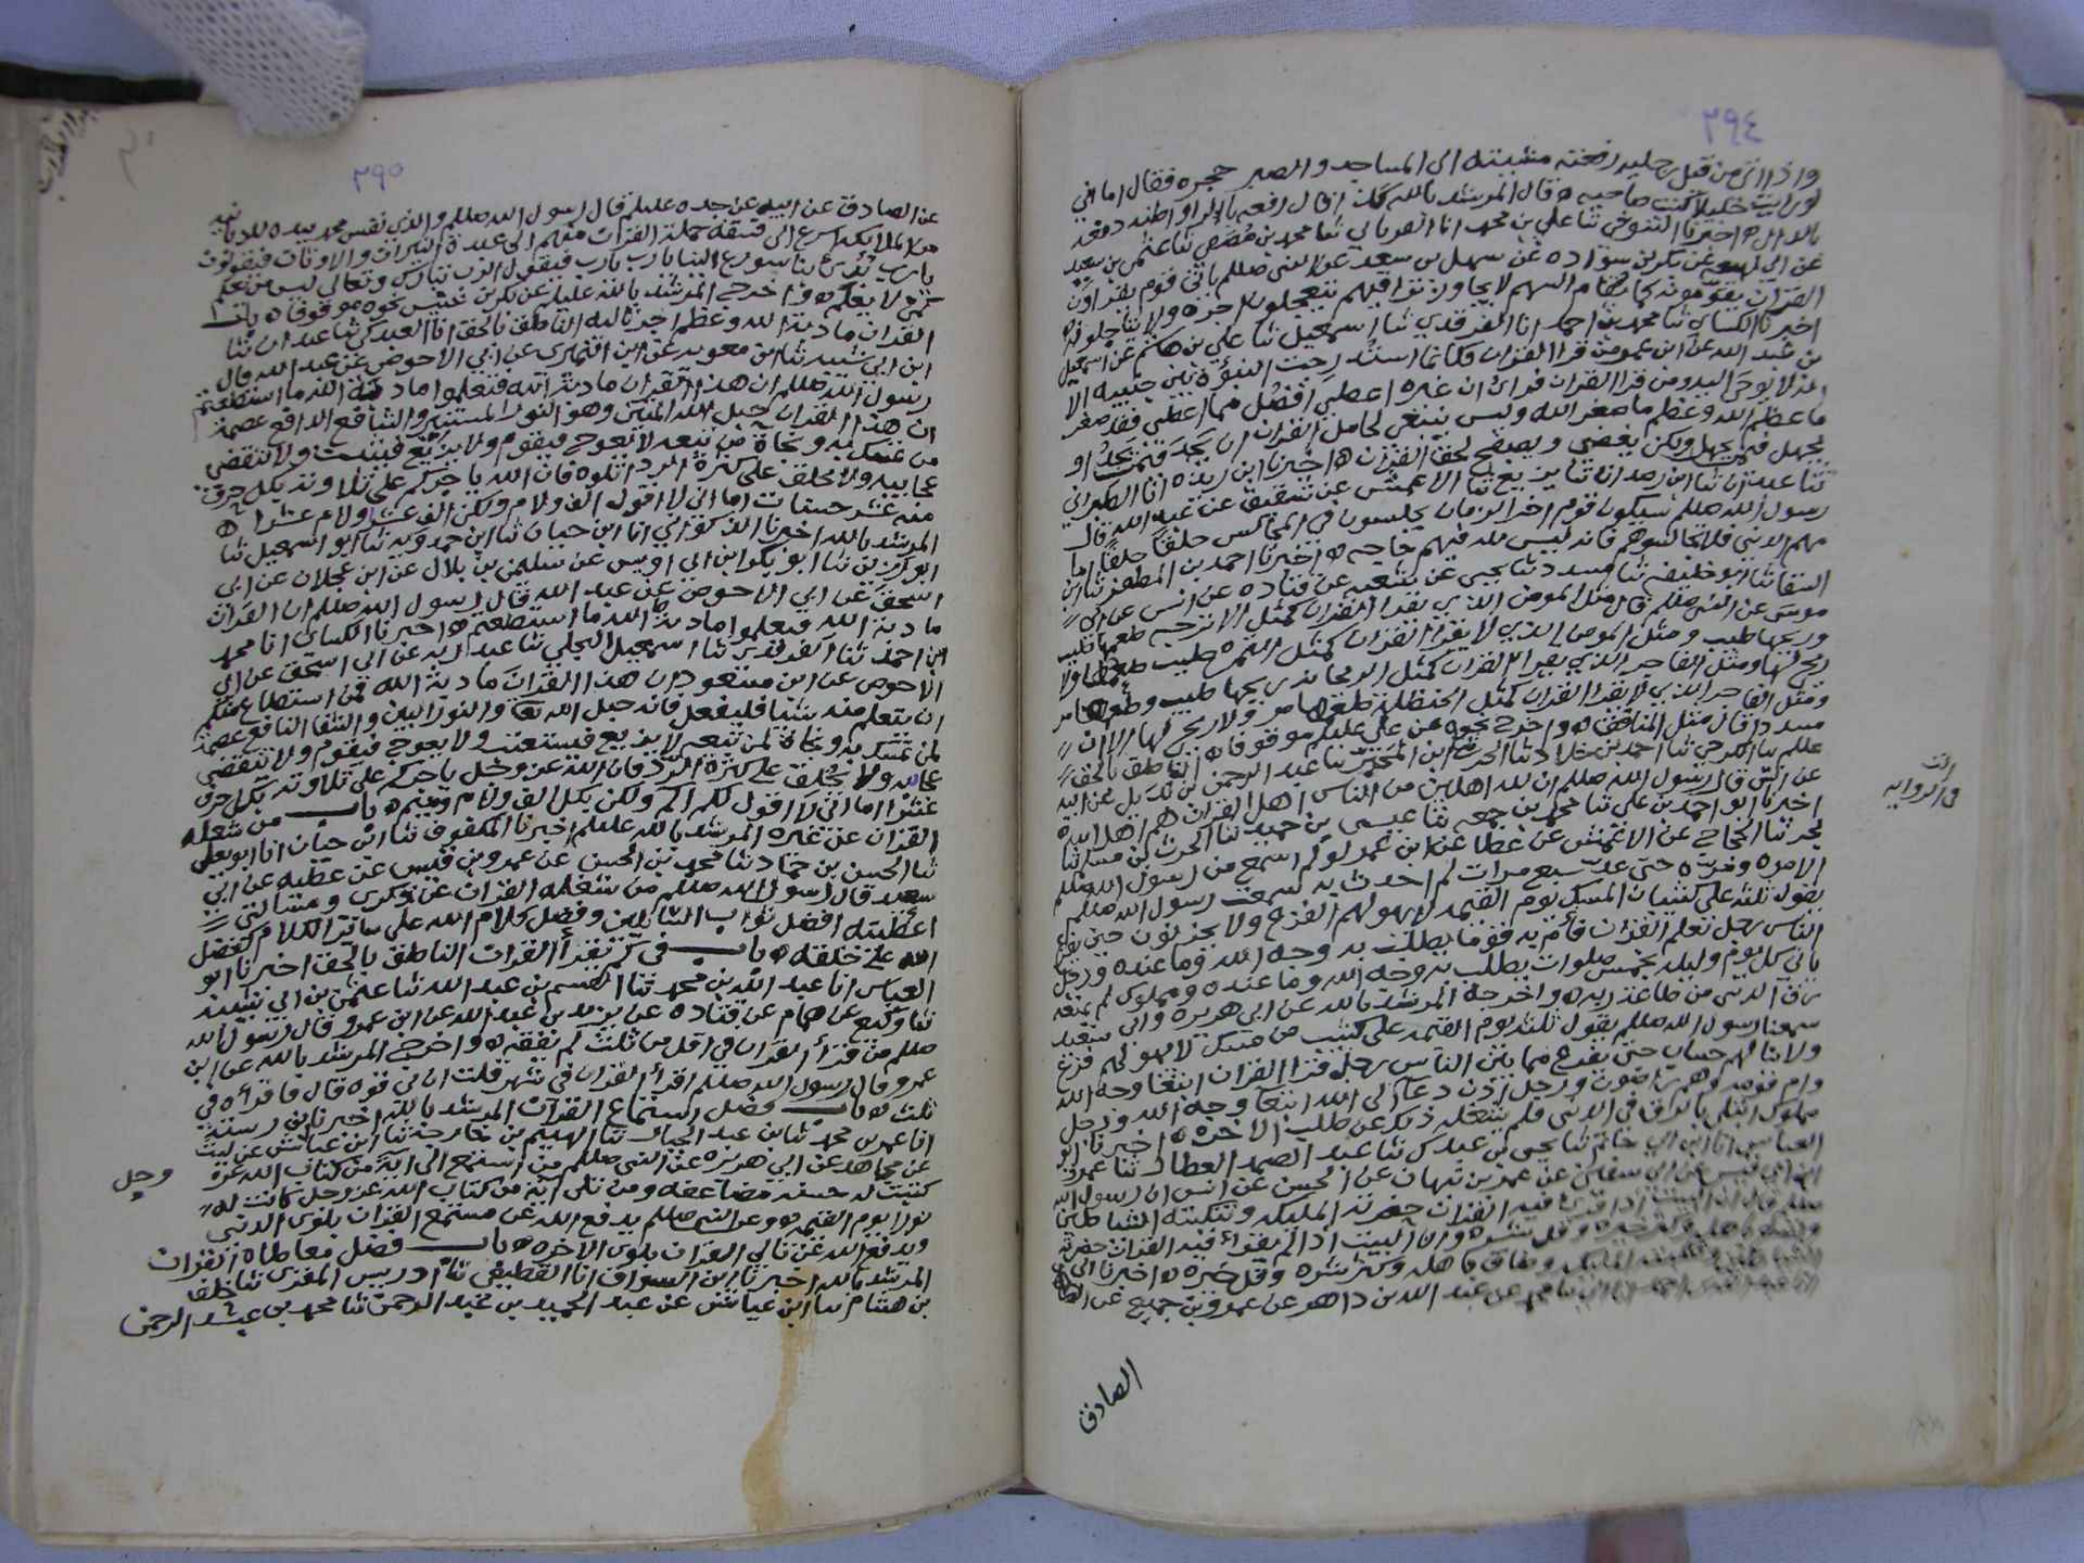 ٢٩٤
واذا اتي من قبل رجليه دفعته مشيته الى المساجد والصبر حجره فقال اما اني
لو رايت خليلا كنت صاحبه ه قال المرشد بالله كذا قال دفعه بالراو اظنه دفعه
بالدال ه اخبرنا التنوخي ثنا علي بن محمد انا الفريابي ثنا محمد بن مصفى ثنا عثمن بن سعيد
عن ابي لهيعه عن بكر بن سواده عن سهل بن سعد عن النبي صللم ياتي قوم يقراون
القران يقومونه كما يقام السهم لا يجاوز تراقيهم يتعجلون اجره ولا يتاجلونه ه
اخبرنا الكسائي ثنا محمد بن احمد انا الفرقدي ثنا اسمعيل ثنا علي بن هاشم عن اسمعيل
بن عبد الله عن ابن عمرو من قرا القران فكانما استدرجت النبوة بين جنبيه الا
انه لا يوحى اليه ومن قرا القران فراى ان غيره اعطي افضل مما اعطي فقد صغر
ما عظم الله وعظم ما صغر الله وليس ينبغي لحامل القران ان يجد فيمن يجد او
يجهل فيمن يجهل ولكن يغضي ويصفح لحق القران ه اخبرنا ابن ريذه انا الطبراني
ثنا عبدان ثنا بزيع ثنا الاعمش عن شقيق عن عبد الله قال
رسول الله صللم سيكون قوم اخر الزمان يجلسون في المجالس حلقا حلقا اما
مهم الدنيا فلا تجالسوهم فانه ليس لله فيهم حاجه ه اخبرنا احمد بن المظفر ثنا ابن
السقا ثنا ابو خليفه ثنا مسدد ثنا يحيى عن شعبه عن قتاده عن انس عن ابي
موسى عن النبي صللم قال مثل المومن الذي يقرا القران كمثل الاترجه طعمها طيب
وريحها طيب ومثل المومن الذي لا يقرا القران كمثل التمره طيب طعمها ولا
ريح لها ومثل الفاجر الذي يقرا القران كمثل الريحانه ريحها طيب وطعمها مر
ومثل الفاجر الذي لا يقرا القران كمثل الحنظله طعمها مر ولا ريح لها الا ان
مسددا قال مثل المنافق ه واخرج نحوه عن علي عليلم موقوفا ه الناطق بالحق
ثنا احمد بن خلاد ثنا الحرث ابن المحبر ثنا عبد الرحمن بن بديل عن ابيه
عن انس قال رسول الله صللم ان لله اهلين من الناس اهل القران هم اهل الله ه
اخبرنا ابو احمد بن علي ثنا محمد بن جمعه ثنا عيسى بن حميد ثنا الحرث بن مسلم ثنا
بحر ثنا الحجاج عن الاعمش عن عطا عن ابن عمر لو لم اسمع من رسول الله صللم
الا مره ومره حتى عد سبع مرات لم احدث به سمعت رسول الله صللم
يقول ثلثه على كثبان المسك يوم القيمه لا يهولهم الفزع ولا يحزنون حين يفزع
الناس رجل تعلم القران فام به قوما يطلب به وجه الله وما عنده ورجل
نادى كل يوم وليله بخمس صلوات يطلب به وجه الله وما عنده ومملوك لم يمنعه
رق الدنيا من طاعة ربه ه واخرجه المرشد بالله عن ابي هريره وابي سعيد
سمعنا رسول الله صللم يقول ثلثه يوم القيمه على كثيب من مسك لا يهولهم فزع
ولا ينالهم حساب حتى يفرغ مما بين الناس رجل قرا القران ابتغا وجه الله
وام قوما وهم به راضون ورجل اذن دعا الى الله ابتغا وجه الله ورجل
مملوك ابتلي بالرق في الدنيا فلم يشغله ذلك عن طلب الاخره ه اخبرنا ابو
العباس انا ابن ابي حاتم ثنا يحيى بن عبدك ثنا عبد الصمد العطار ثنا عمرو
ابن ابي قيس عن ابي سفيان عن عمر بن نبهان عن الحسن عن انس ان رسول الله
صللم قال ان البيت اذا قرئ فيه القران حضرته المليكه وتنكبته الشياطين
واتسع باهله وكثر خيره وقل شره وان البيت اذا لم يقرا فيه القران حضرته
الشياطين وتنكبته المليكه وضاق باهله وكثر شره وقل خيره ه اخبرنا ابي
عن عبد الله بن داهر عن عمرو بن جميع عن
الصادق
٢٩٥
عن الصادق عن ابيه عن جده عليلم قال رسول الله صللم والذي نفس محمد بيده للزبانيه
من الملايكه اسرع الى فسقة حملة القران منهم الى عبدة النيران والاوثان فيقولون
يا رب بدئ بنا سورع الينا يا رب يا رب فيقول الرب تبارك وتعالى ليس من يعلم
كمن لا يعلم ه واخرج المرشد بالله عليلم عن بكر بن خنيس نحوه موقوفا ه باب
القران مادبة الله وعظم اجر تاليه الناطق بالحق انا العبدكي ثنا عبدان ثنا
ابن ابي شيبه ثنا ابن معويه عن ابن الهجري عن ابي الاحوص عن عبد الله قال
رسول الله صللم ان هذا القران مادبة الله فتعلموا مادبة الله ما استطعتم
ان هذا القران حبل الله المتين وهو النور المستنير والشافع الدافع عصمة
من تمسك به ونجاة من تبعه لا يعوج فيقوم ولا يزيغ فيتثبت ولا تنقضي
عجايبه ولا يخلق على كثرة الرد اتلوه فان الله ياجركم على تلاوته بكل حرف
منه عشر حسنات اما اني لا اقول الف ولام ولكن الف عشرا ولام عشرا ه
المرشد بالله اخبرنا الذكواني انا ابن حبان ثنا ابن حمدويه ثنا ابو اسمعيل ثنا
ثنا ابو بكر ابن ابي اويس عن سليمن بن بلال عن ابن عجلان عن ابي
اسحق عن ابي الاحوص عن عبد الله قال رسول الله صللم ان القران
مادبة الله فتعلموا مادبة الله ما استطعتم ه اخبرنا الكسائي انا محمد
ابن احمد ثنا الفرقدي ثنا اسمعيل البجلي ثنا عبد ربه عن ابي اسحق عن ابي
الاحوص عن ابن مسعود ان هذا القران مادبة الله فمن استطاع منكم
ان يتعلم منه شيئا فليفعل فانه حبل الله تعا والنور المبين والشفا النافع عصمة
لمن تمسك به ونجاة لمن تبعه لا يزيغ فيستعتب ولا يعوج فيقوم ولا تنقضي
عجائبه ولا يخلق على كثرة الرد فان الله عز وجل ياجركم على تلاوته بكل حرف
عشرا اما اني لا اقول لكم الم ولكن بكل الف ولام وميم ه باب من شغله
القران عن غيره المرشد بالله عليلم اخبرنا المكفوف ثنا ابن حبان انا ابو يعلى
ثنا الحسن بن حماد ثنا محمد بن الحسن عن عمرو بن قيس عن عطيه عن ابي
سعيد قال رسول الله صللم من شغله القران عن ذكري ومسالتي
اعطيته افضل ثواب السايلين وفضل كلام الله على سائر الكلام كفضل
الله على خلقه ه باب في كم تقرا القران الناطق بالحق اخبرنا ابو
العباس انا عبد الله بن محمد ثنا القسم بن عبد الله ثنا عثمن بن ابي شيبه
ثنا وكيع عن همام عن قتاده عن يزيد بن عبد الله عن ابن عمرو قال رسول الله
صللم من قرا القران في اقل من ثلث لم يفقه ه واخرج المرشد بالله عن ابن
عمرو قال رسول الله صللم اقرا القران في شهر قلت ان لي قوه قال فاقراه في
ثلث ه باب فضل استماع القران المرشد بالله اخبرنا ابن رسته
انا عمر بن محمد ثنا ابن عبد الجبار ثنا الهيثم بن خارجه ثنا ابن عياش عن ليث
عن مجاهد عن ابي هريره عن النبي صللم من استمع الى اية من كتاب الله عز
وجل
كتبت له حسنه مضاعفه ومن تلى اية من كتاب الله عز وجل كانت له
نورا يوم القيمه ه وعن النبي صللم يدفع الله عن مستمع القران بلوى الدنيا
ويدفع الله عن تالي القران بلوى الاخره ه باب فضل معاطاة القران
المرشد بالله اخبرنا ابن السواق انا القطيعي ثنا ادريس المقري ثنا خلف
بن هشام ثنا ابن عياش عن عبد الحميد بن عبد الرحمن ثنا محمد بن عبد الرحمن